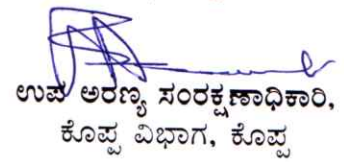 ಉಪ ಅರಣ್ಯ ಸಂರಕ್ಷಣಾಧಿಕಾರಿ,
ಕೊಪ್ಪ ವಿಭಾಗ, ಕೊಪ್ಪ